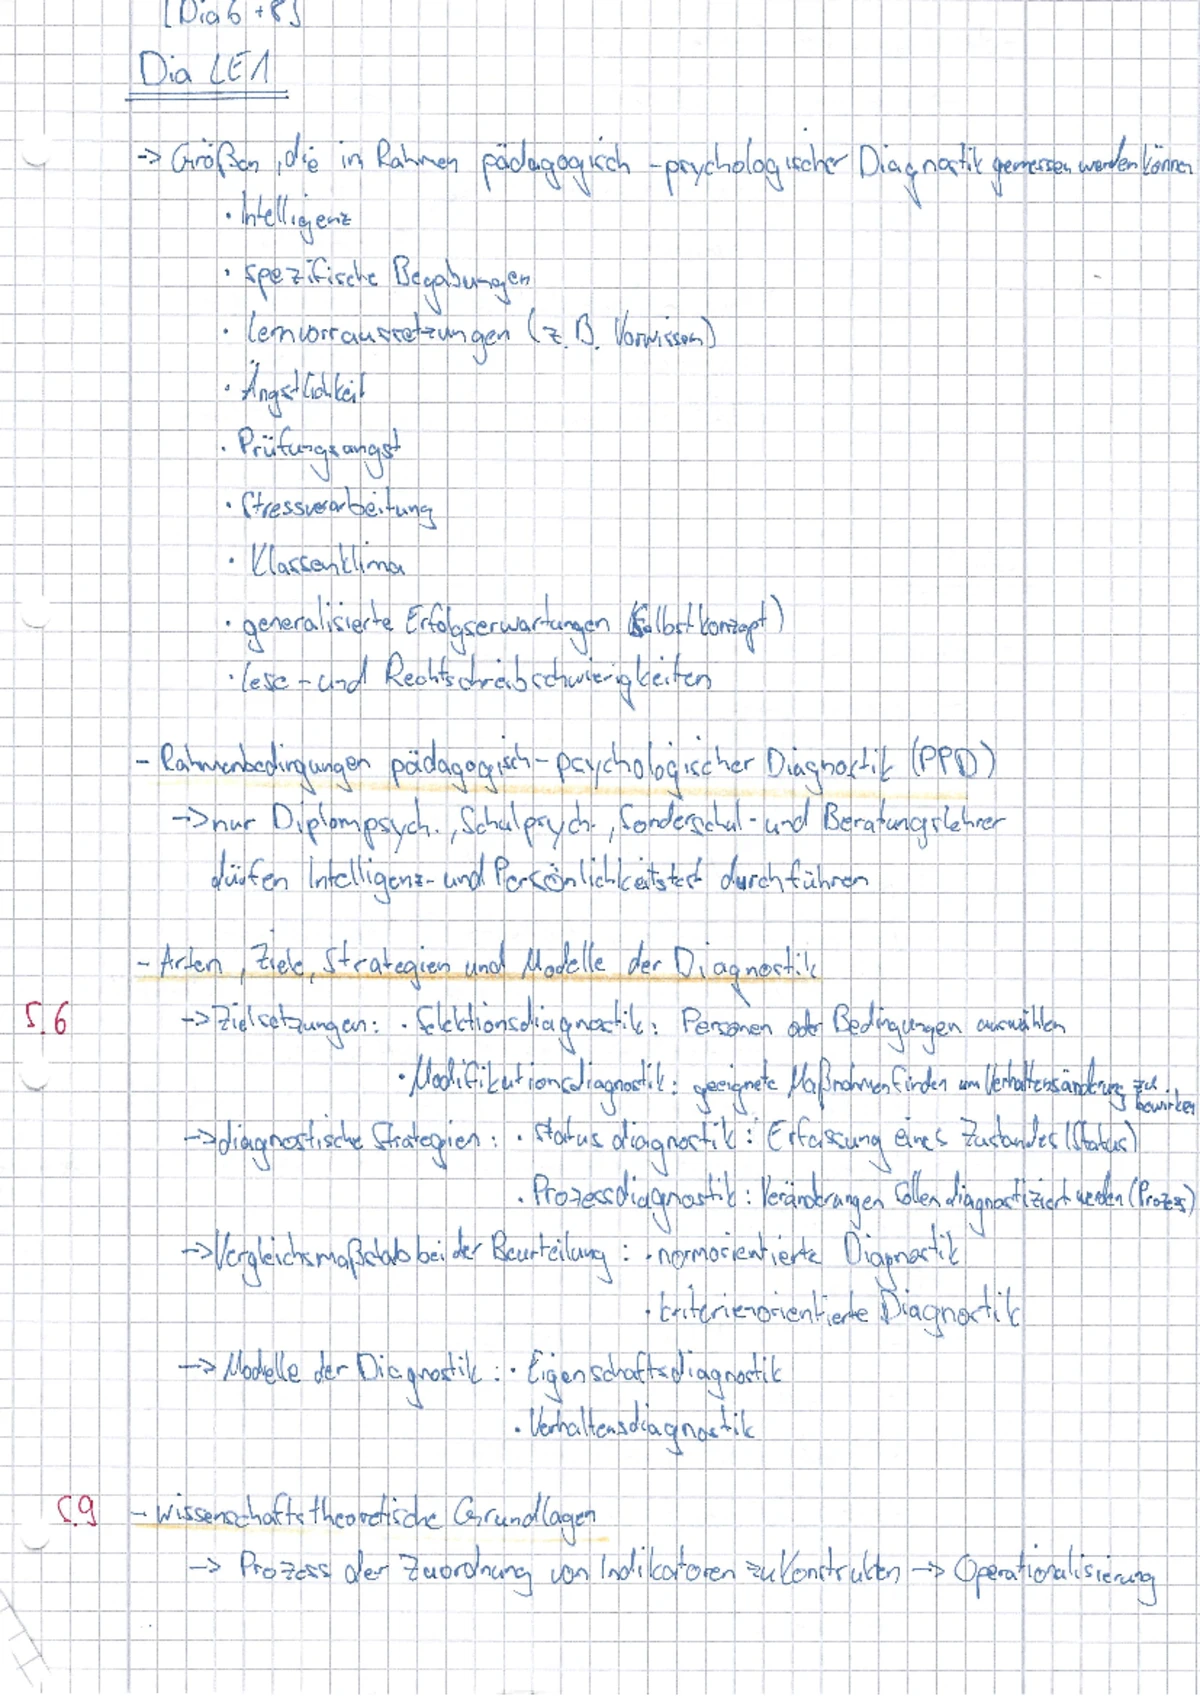 [Dia 6 + 8]
Dia LE1
-> Größen, die in Rahmen pädagogisch-psychologischer Diagnostik gemessen werden können
· Intelligenz
· spezifische Begabungen
· Lernvorraussetzungen (z.B. Vorwissen)
· Ängstlichkeit
· Prüfungsangst
· Stressverarbeitung
· Klassenklima
· generalisierte Erfolgserwartungen (Selbstkonzept)
· Lese- und Rechtschreibschwierigkeiten
- Rahmenbedingungen pädagogisch-psychologischer Diagnostik (PPD)
-> nur Diplompsych., Schulpsych., Sonderschul- und Beratungslehrer
dürfen Intelligenz- und Persönlichkeitstest durchführen
- Arten, Ziele, Strategien und Modelle der Diagnostik
S.6 -> Zielsetzungen: · Selektionsdiagnostik: Personen oder Bedingungen auswählen
· Modifikationsdiagnostik: geeignete Maßnahmen finden um Verhaltensänderung zu
bewirken
-> diagnostische Strategien: · Statusdiagnostik: Erfassung eines Zustandes (Status)
· Prozessdiagnostik: Veränderungen sollen diagnostiziert werden (Prozess)
-> Vergleichsmaßstab bei der Beurteilung: · normorientierte Diagnostik
· kriterienorientierte Diagnostik
-> Modelle der Diagnostik: · Eigenschaftsdiagnostik
· Verhaltensdiagnostik
S.9 - wissenschaftstheoretische Grundlagen
-> Prozess der Zuordnung von Indikatoren zu Konstrukten -> Operationalisierung